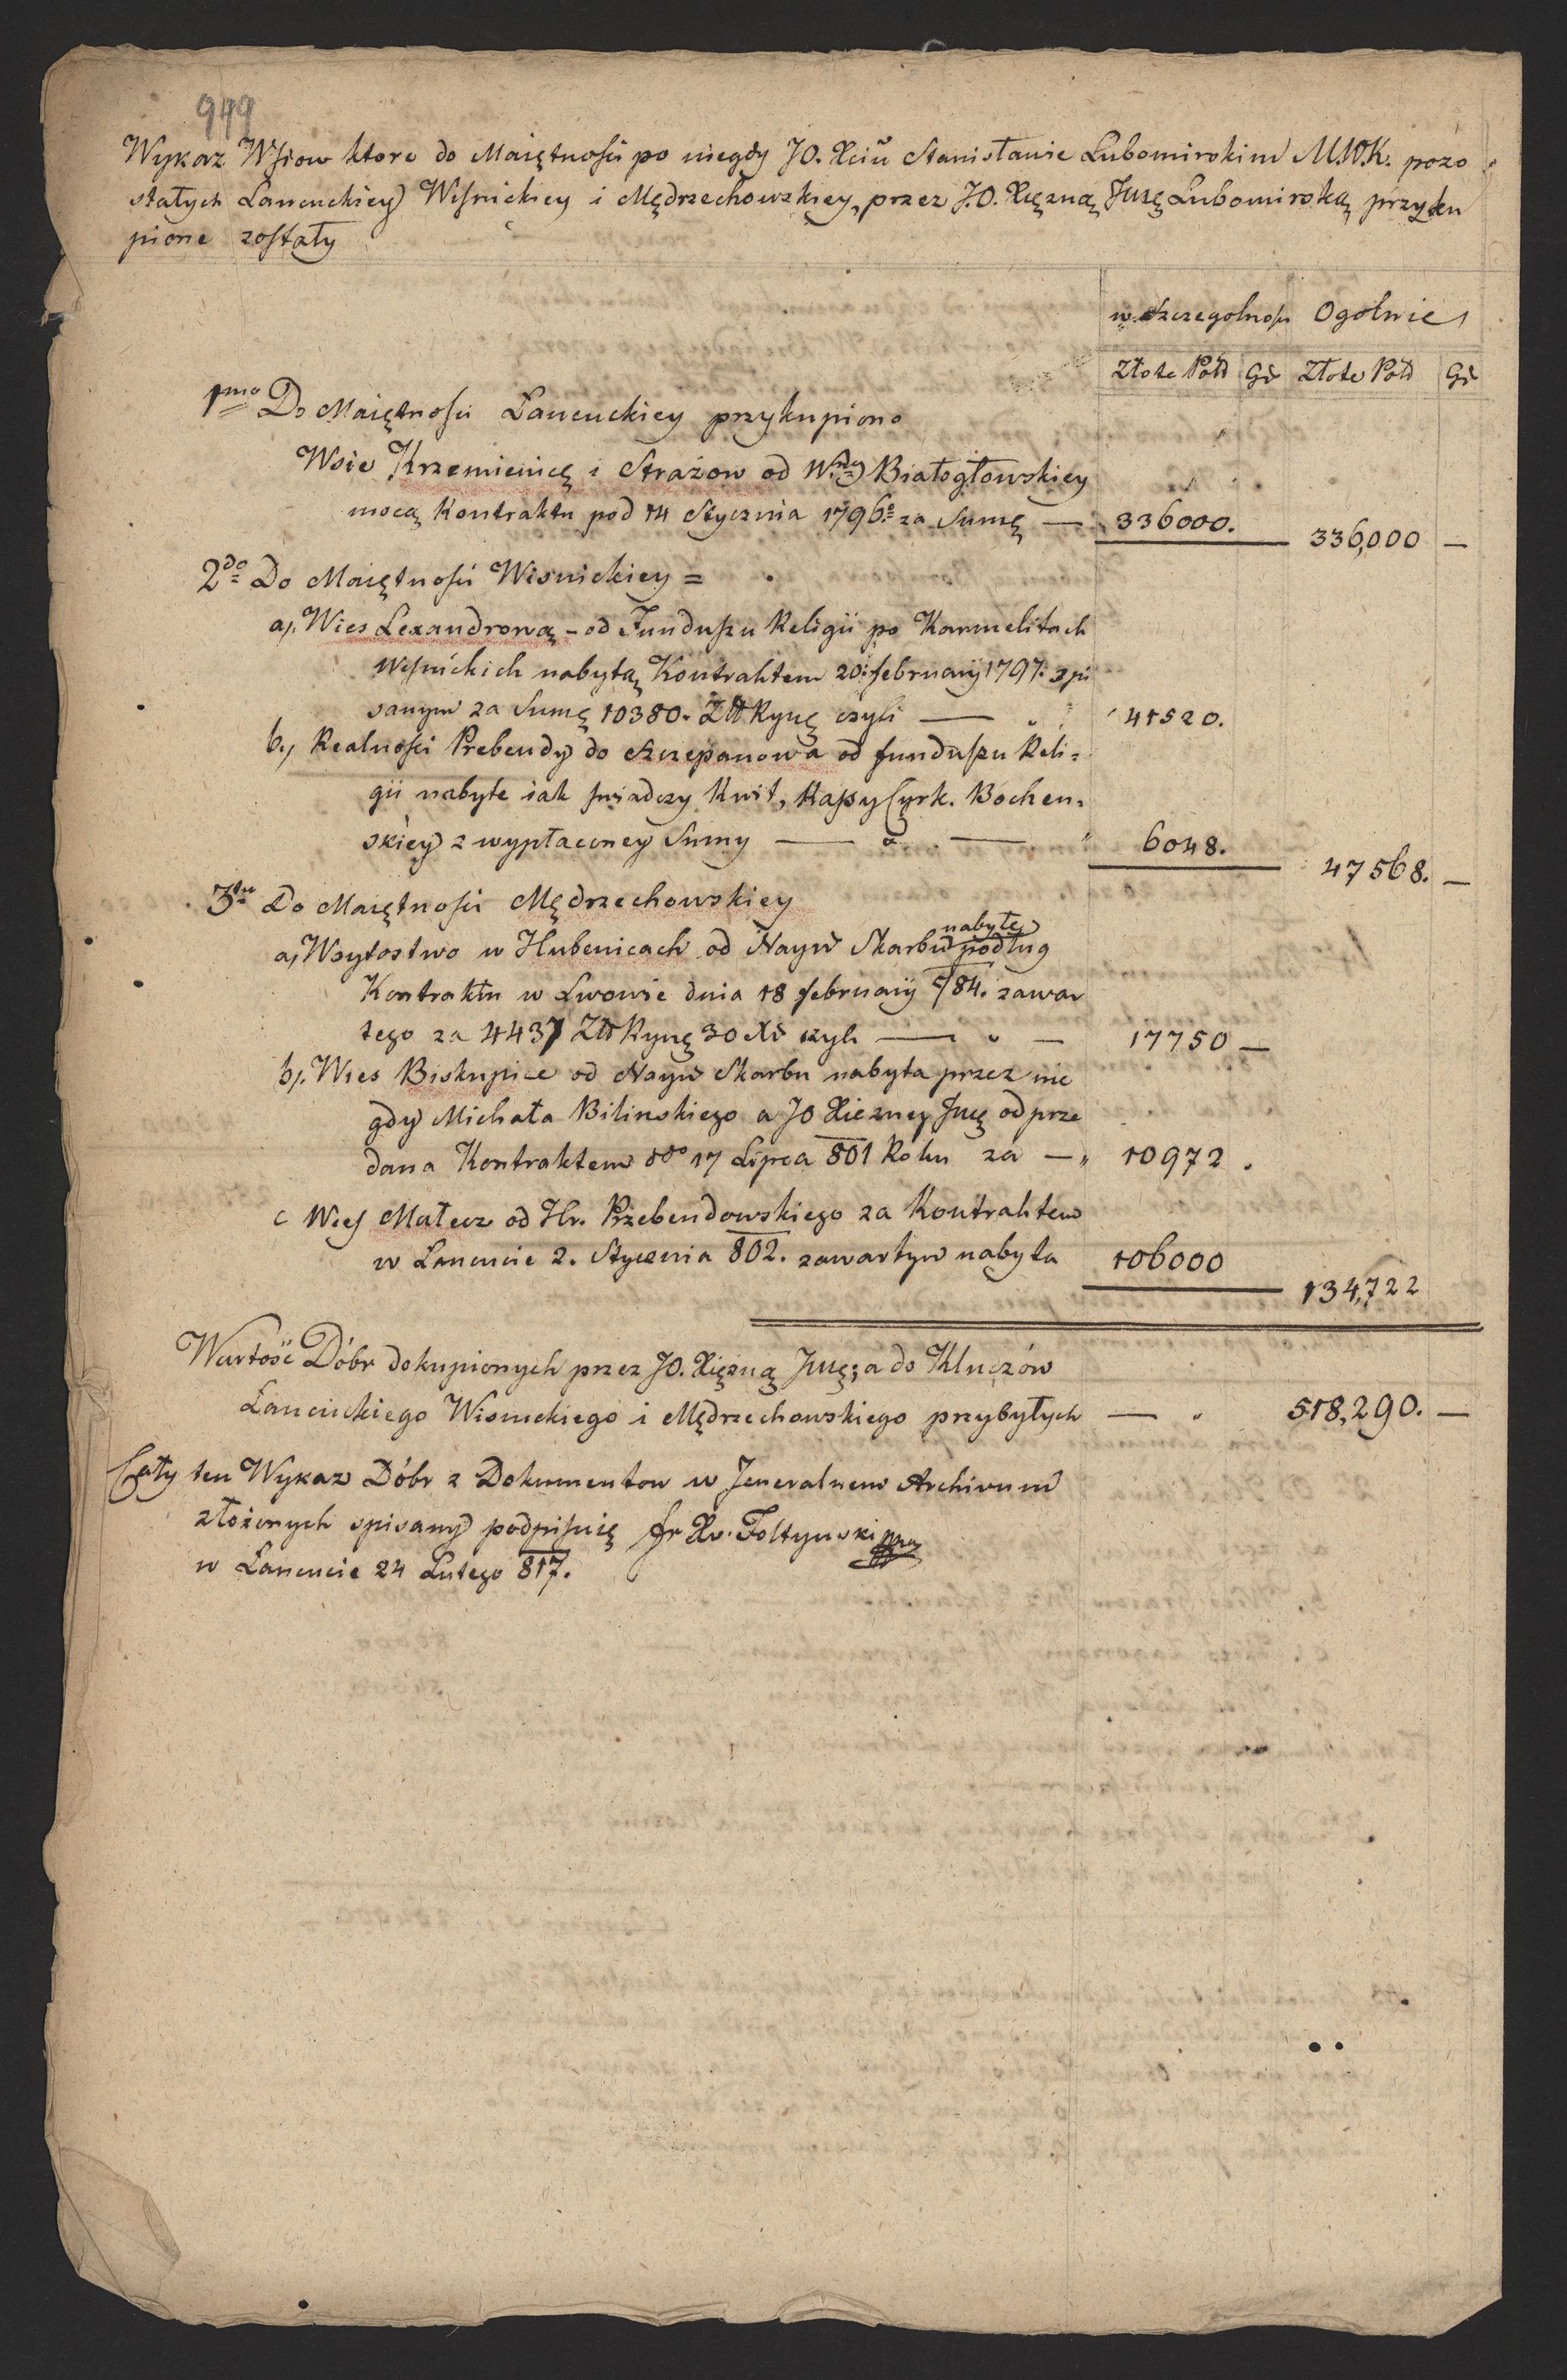 949
Wykaz Wsiow ktore do Maiętnosci po niegdy JO. Xciu Stanisławie Lubomirskim M.W.K. pozo
stałych Lancuckiey Wisnickiey i Mędrzechowskiey, przez J.O. Xiężną Jmę Lubomirską przyku
pione zostały
w Szczegolnosci Ogolnie
Złote Pols Gr Złote Pols Gr
1mo Do Maiętnosci Lancuckiey przykupiono
Wsie Krzemienicę i Strażow od W. Białogłowskiey
mocą Kontraktu pod 14 Stycznia 1796. za Sumę — 336000. 336,000 —
2do Do Maiętnosci Wisnickiey =
a). Wies Lexandrową - od Funduszu Religii po Karmelitach
Wisnickich nabytą Kontraktem 20. february 1797. spi
sanym za Sumę 10380. Złt Ryng czyli — 41520.
b) Realnosci Prebendy do Szczepanowa od funduszu Reli=
gii nabyte iak swiadczy Kwit, Kassy Cyrk. Bochen.
skiey z wypłaconey Sumy — 6048. 47568. —
3tio Do Maiętnosci Mędrzechowskiey
nabyte
a) Woytostwo w Hubenicach od Nayw Skarbu podług
Kontraktu w Lwowie dnia 18 february 784. zawar
tego za 4437 Złt Ryng 30 Xr czyli — 17750 —
b). Wies Biskupice od Nayw Skarbu nabyta przez nie
gdy Michała Bilinskiego a JO Xiezney Jmę odprze
dana Kontraktem ddo 17 Lipca 801 Roku za — 10972.
c Wies Małecz od Hr. Przebendowskiego za Kontraktem
w Lancucie 2. Stycznia 802. zawartym nabyta 106000 134,722
Wartość Dóbr dokupionych przez JO. Xiężną Jmę, a do Kluczów
Lancuckiego Wisnickiego i Mędrzechowskiego przybyłych — 518,290. —
Cały ten Wykaz Dóbr z Dokumentow w Jeneralnem Archivum
złożonych spisany podpisuię Fr Xv. Foltynski mp
w Lancucie 24 Lutego 817.